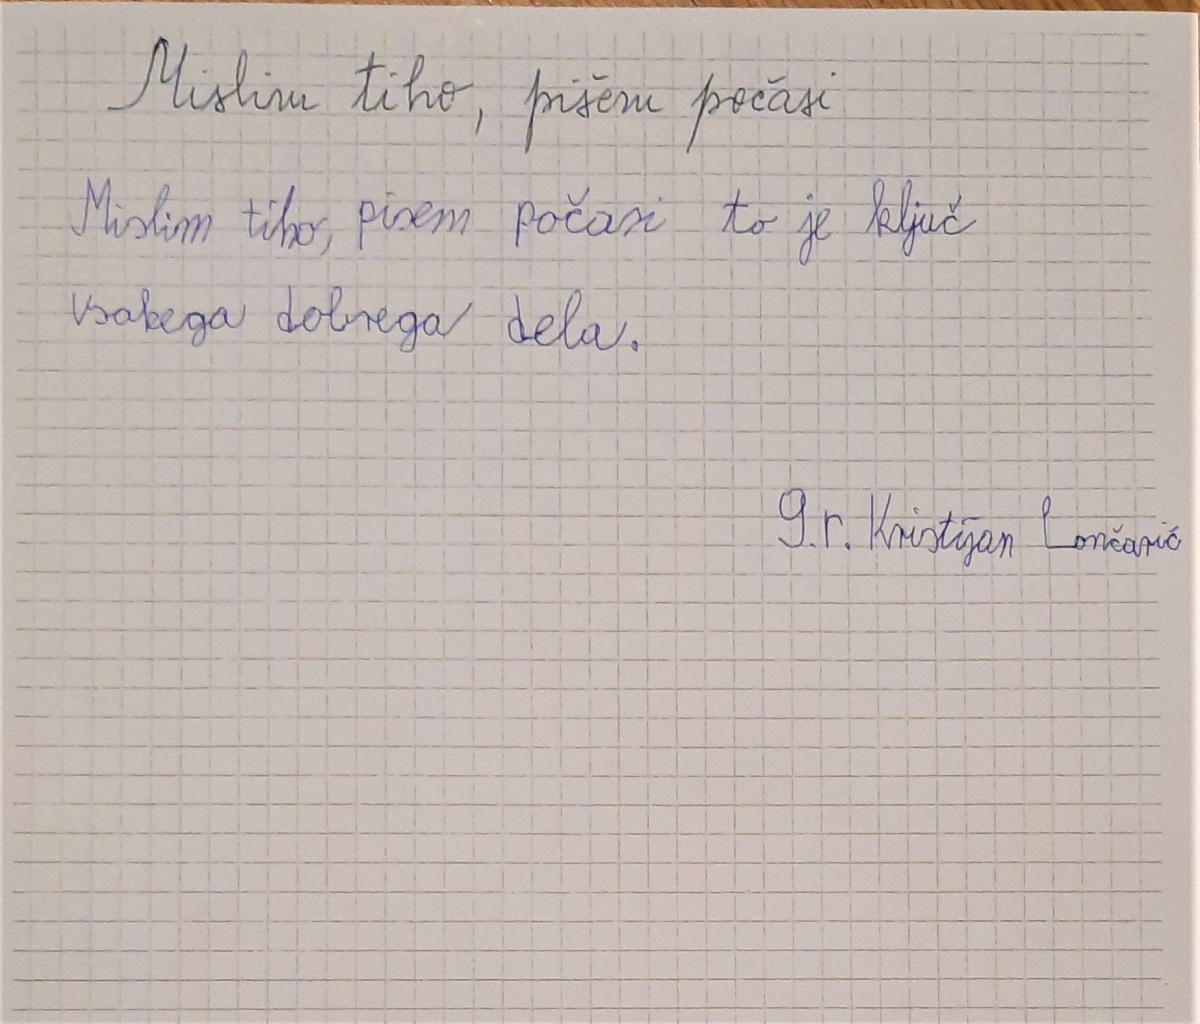 Mislim tiho, pišem počasi
Mislim tiho, pisem počasi to je ključ
vsakega dobrega dela.
9.r. Kristijan Lončarič